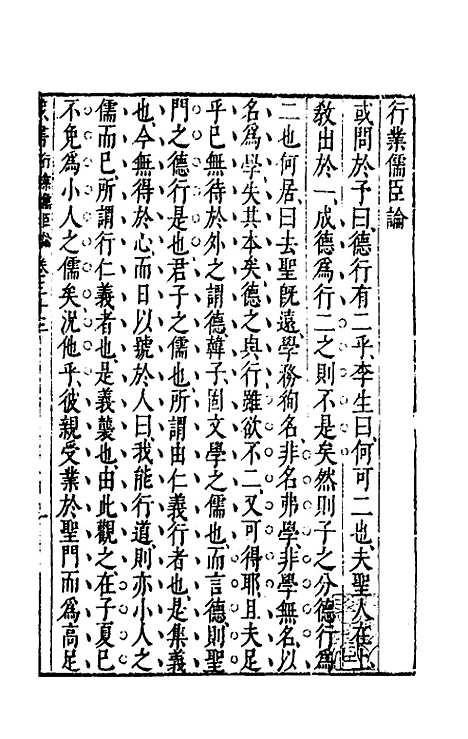 行業儒臣論
或問於予曰德行有二乎李生曰何可二也夫聖人在上
教出於一成德為行二之則不是矣然則子之分德行為
二也何居曰去聖既遠學務徇名非名弗學非學無名以
名為學失其本矣德之與行雖欲不二又可得耶且夫足
乎已無待於外之謂德韓子固文學之儒也而言德則聖
門之德行是也君子之儒也所謂由仁義行者也是集義
也今無得於心而日以號於人曰我能行道則亦小人之
儒而已所謂行仁義者也是義襲也由此觀之在子夏已
不免為小人之儒矣況他乎彼親受業於聖門而為高足
藏書行業儒臣論 卷三十三